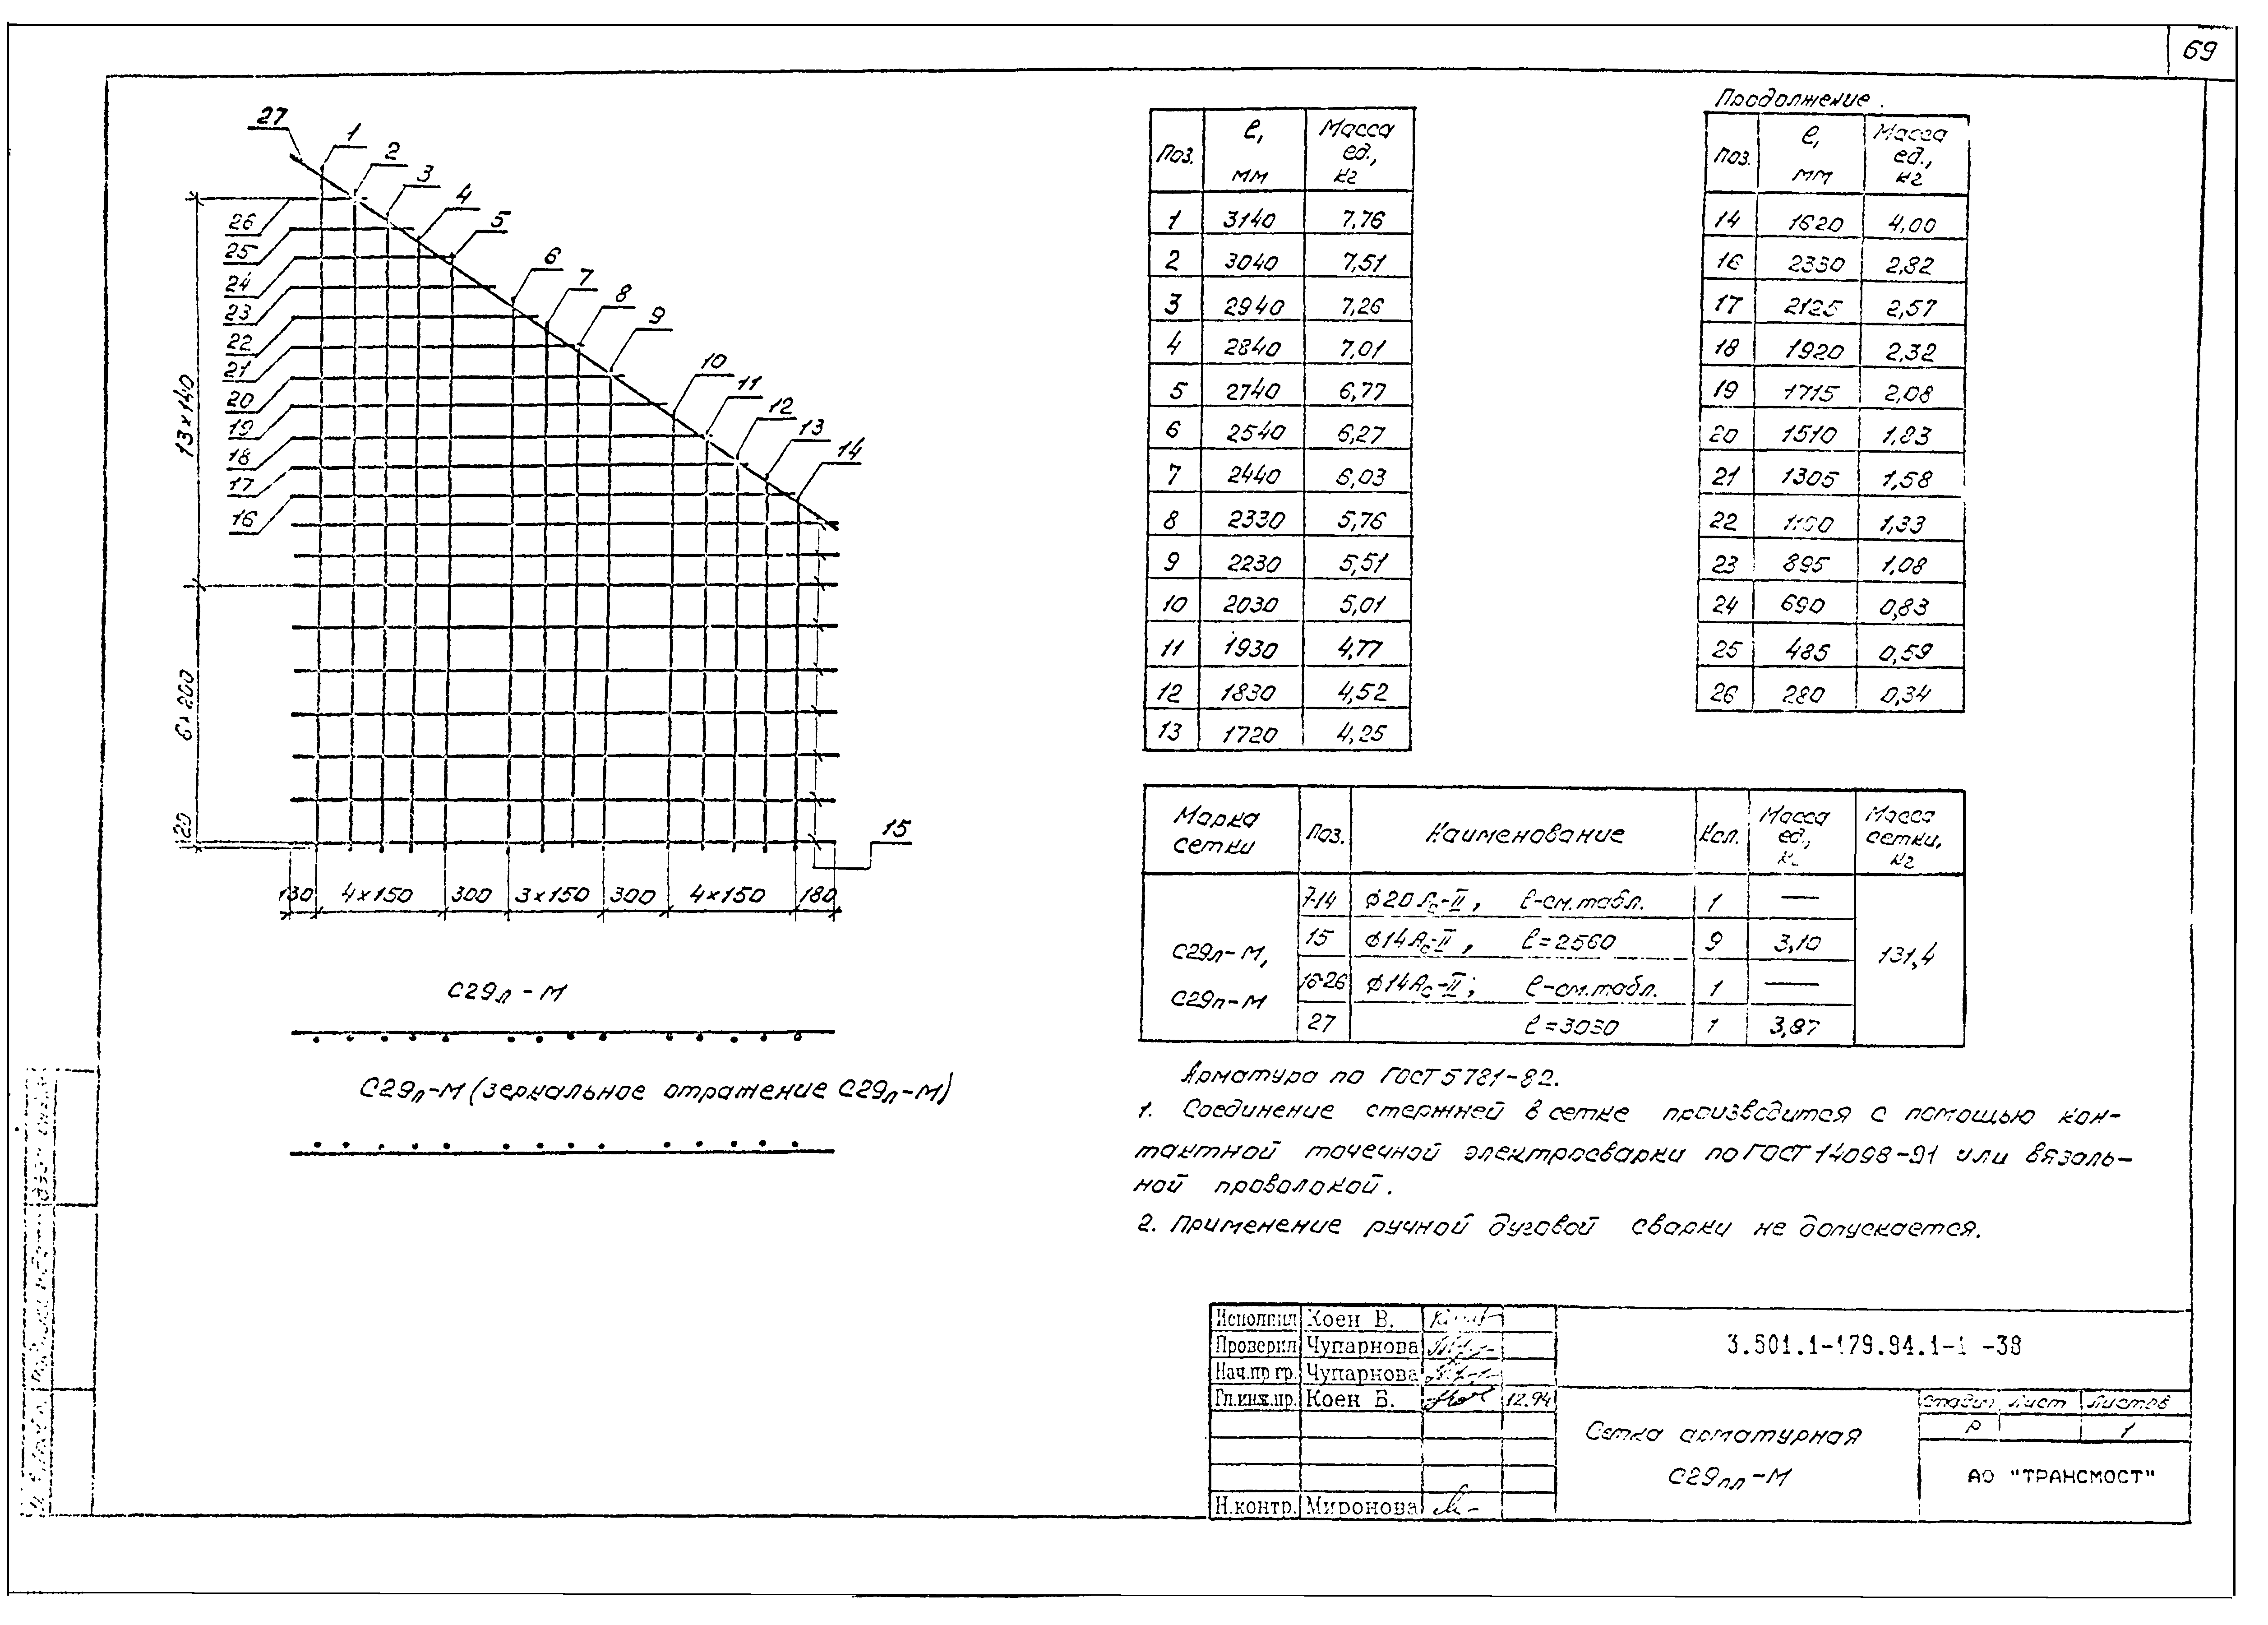 69
27
1
2
3
4
5
6
7
8
9
10
11
12
13
14
26
25
24
23
22
21
20
19
18
17
16
15
13×140
6×200
20
130 4×150 300 3×150 300 4×150 180
С29л-М
С29п-М (зеркальное отражение С29л-М)
Поз. ℓ, мм Масса ед., кг
1 3140 7,76
2 3040 7,51
3 2940 7,26
4 2840 7,01
5 2740 6,77
6 2540 6,27
7 2440 6,03
8 2330 5,76
9 2230 5,51
10 2030 5,01
11 1930 4,77
12 1830 4,52
13 1720 4,25
Продолжение.
Поз. ℓ, мм Масса ед., кг
14 1620 4,00
16 2330 2,82
17 2125 2,57
18 1920 2,32
19 1715 2,08
20 1510 1,83
21 1305 1,58
22 1100 1,33
23 895 1,08
24 690 0,83
25 485 0,59
26 280 0,34
Марка сетки Поз. Наименование Кол. Масса ед., кг Масса сетки, кг
С29л-М,
С29п-М
1-14 ϕ20Ac-II, ℓ-см.табл. 1 —
15 ϕ14Ac-II, ℓ=2560 9 3,10
16-26 ϕ14Ac-II; ℓ-см.табл. 1 —
27 ℓ=3030 1 3,87
131,4
Арматура по ГОСТ 5781-82.
1. Соединение стержней в сетке производится с помощью кон-
тактной точечной электросварки по ГОСТ 14098-91 или вязаль-
ной проволокой.
2. Применение ручной дуговой сварки не допускается.
Исполнил Коен В.
Проверил Чупарнова
Нач.пр гр. Чупарнова
Гл.инж.пр. Коен Б. 12.94
Н.контр. Миронова
3.501.1-179.94.1-1 -38
Сетка арматурная
С29пл-М
Стадия Лист Листов
Р 1
АО "ТРАНСМОСТ"